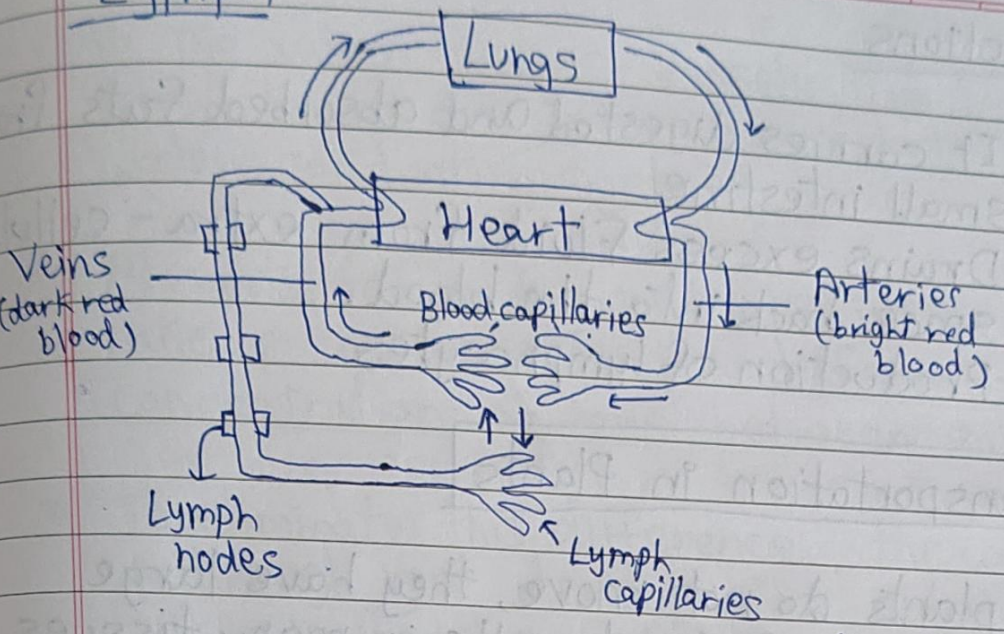 Lungs
Heart
Veins
(dark red
blood)
Blood capillaries
Arteries
(bright red
blood)
Lymph
nodes
Lymph
capillaries